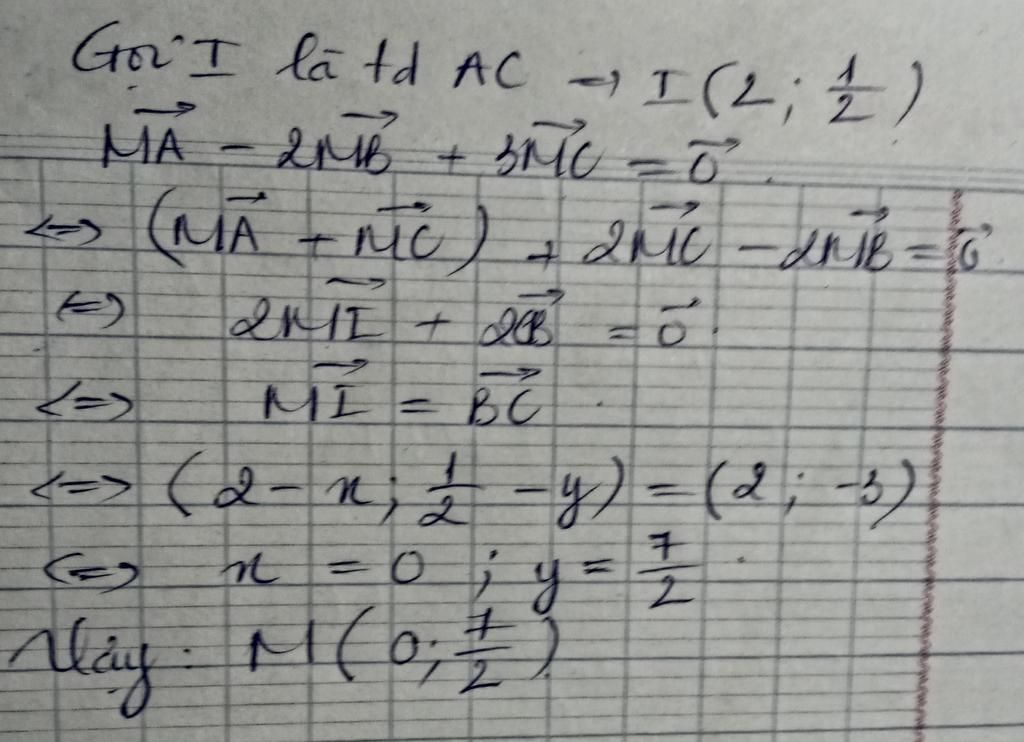 Gọi I là td AC → I(2; 1/2)
→MA - 2→MB + 3→MC = →0.
<=> (→MA + →MC) + 2→MC - 2→MB = →0
<=> 2→MI + 2→CB = →0.
<=> →MI = →BC.
<=> (2 - x; 1/2 - y) = (2; -3)
<=> x = 0; y = 7/2.
Vậy: M(0; 7/2)